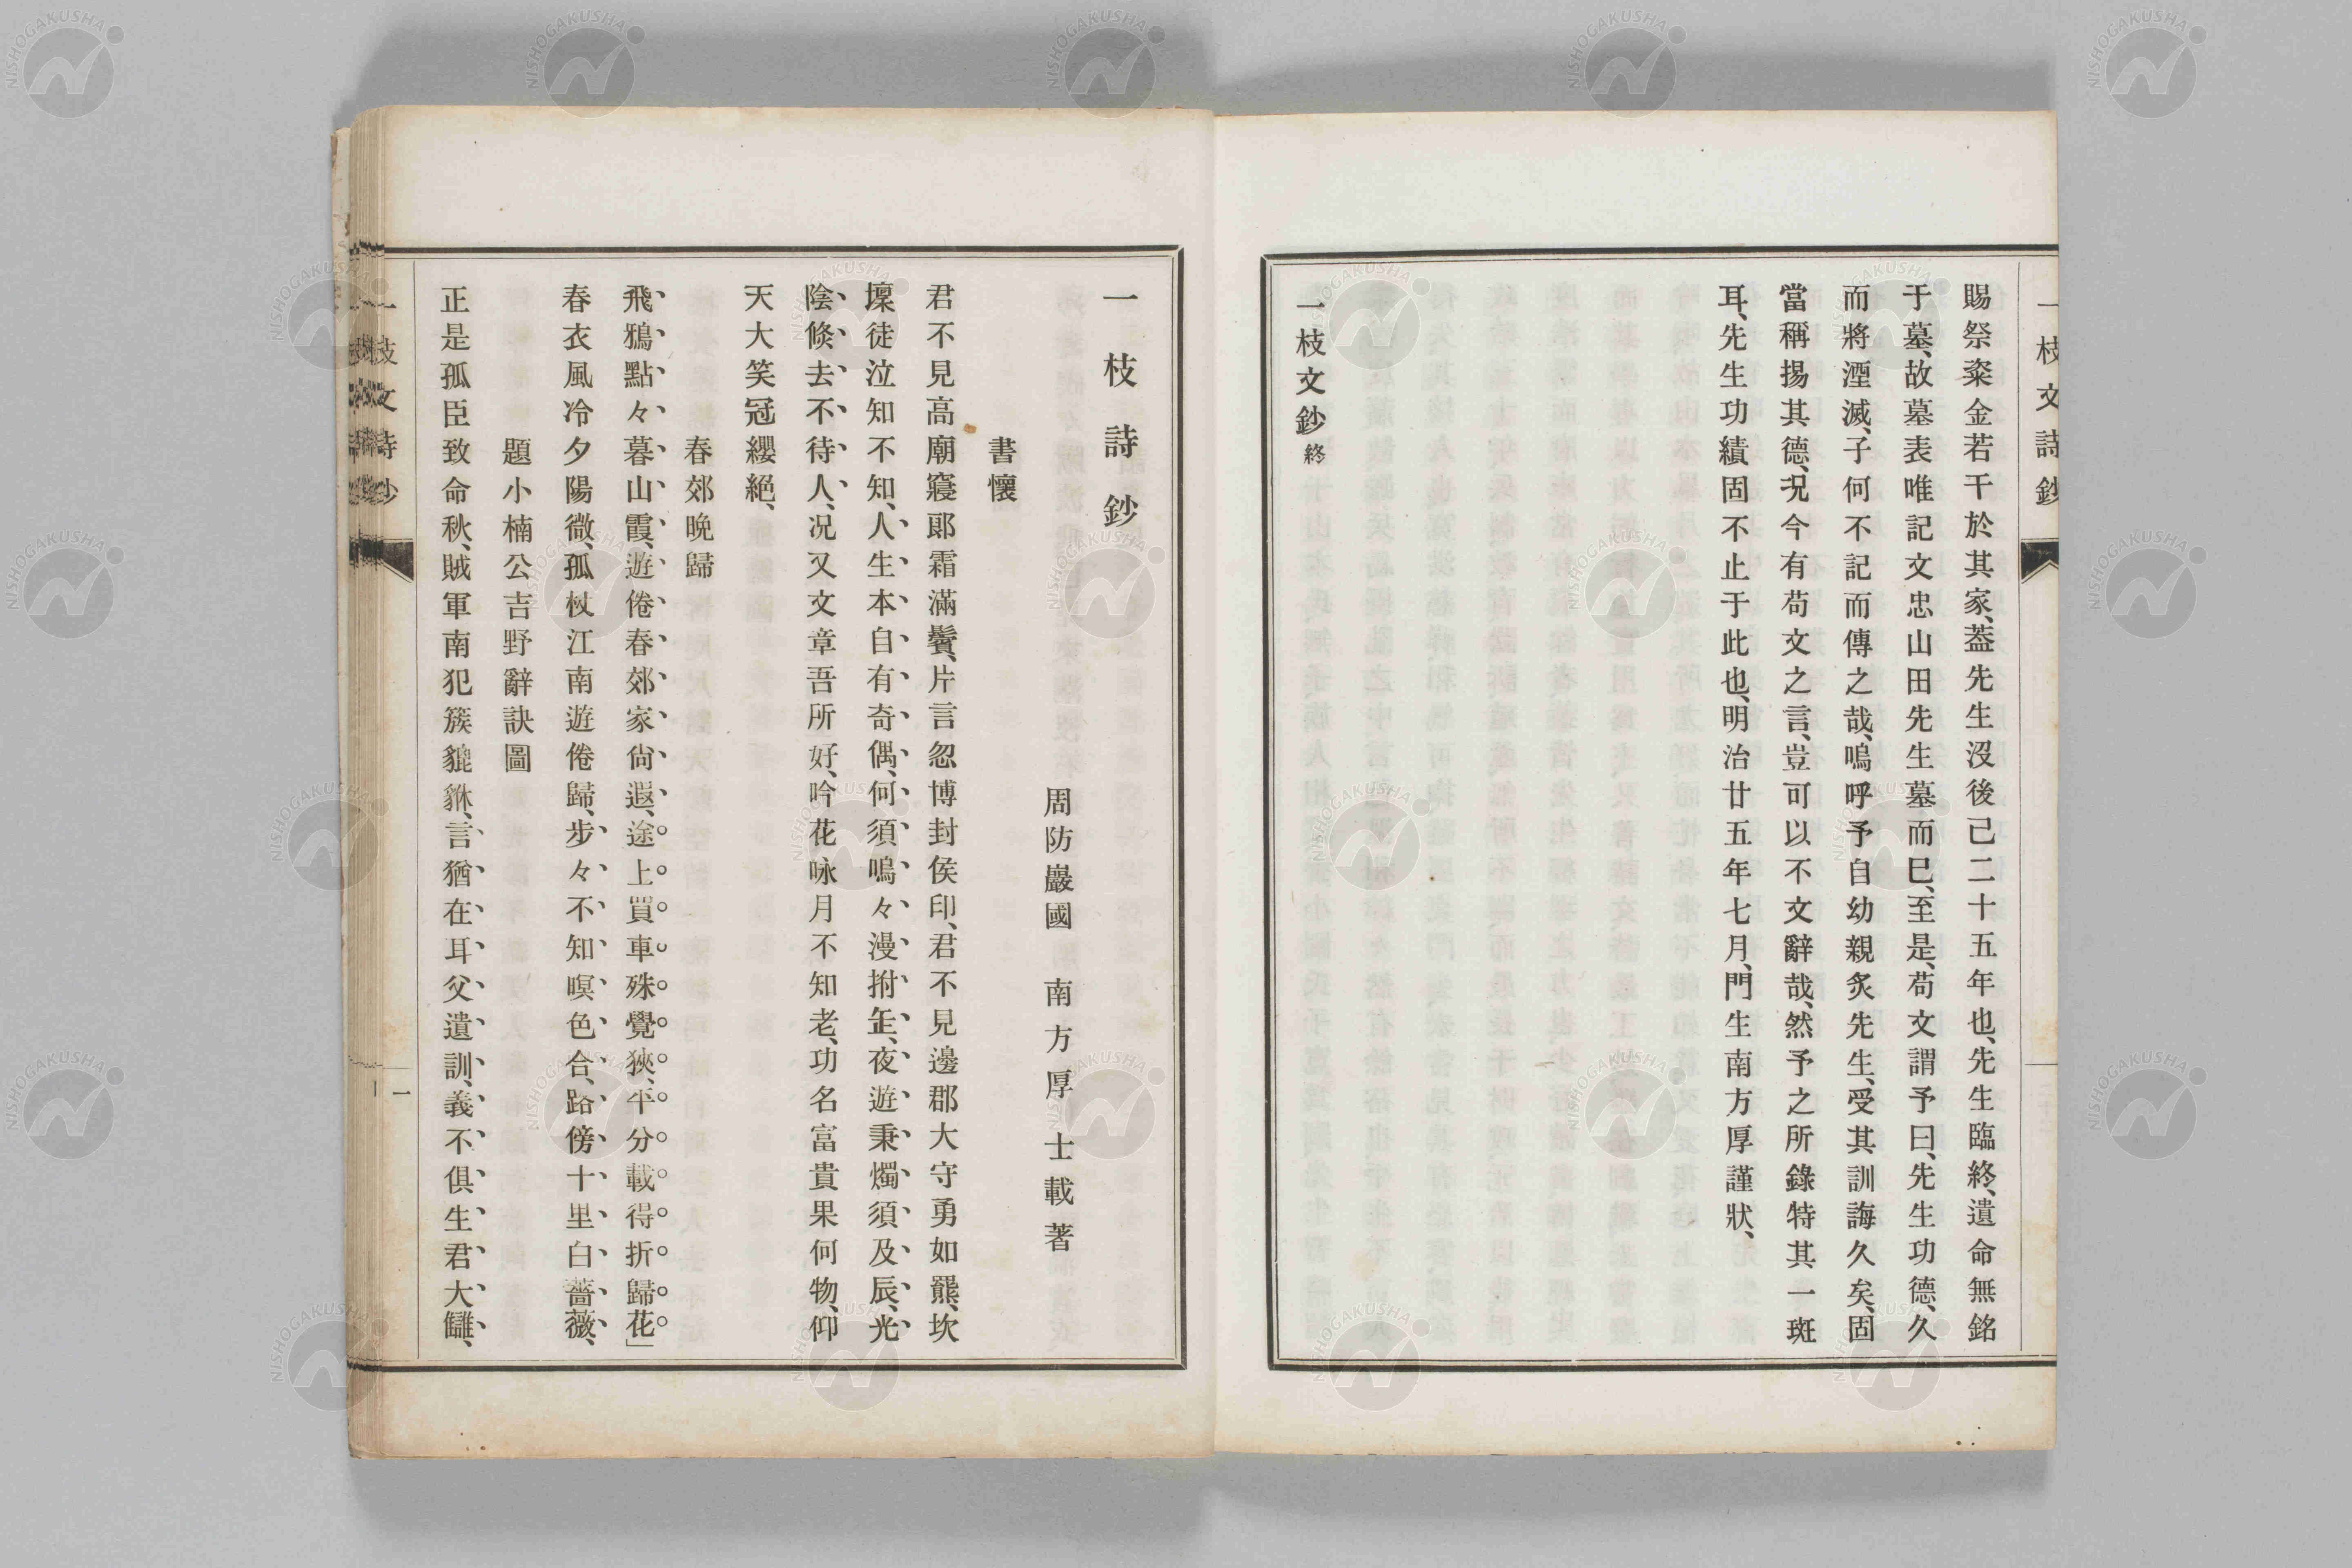 一枝文詩鈔
賜祭粢金若干於其家、葢先生沒後已二十五年也、先生臨終、遺命無銘
于墓、故墓表唯記文忠山田先生墓、而已、至是、苟文謂予曰、先生功德、久
而將湮滅、子何不記而傳之哉、嗚呼予自幼親炙先生、受其訓誨久矣、固
當稱揚其德、况今有苟文之言、豈可以不文辭哉、然予之所錄特其一斑
耳、先生功績固不止于此也、明治廿五年七月、門生南方厚謹狀、
一枝文鈔終
一枝詩鈔
周防巖國 南方厚 士載著
書懷
君不見高廟寢郞霜滿鬢、片言忽博封侯印、君不見邊郡大守勇如羆、坎
壈徒泣知不知、人生本自有奇偶、何須鳴々漫拊缶、夜遊秉燭須及辰、光
陰倏去不待人、况又文章吾所好、吟花咏月不知老、功名富貴果何物、仰
天大笑冠纓絕、
春郊晚歸
飛鴉點々暮山霞、遊倦春郊家尙遐、途上買車殊覺狹、平分載得折歸花」
春衣風冷夕陽微、孤杖江南遊倦歸、步々不知暝色合、路傍十里白薔薇、
題小楠公吉野辭訣圖
正是孤臣致命秋、賊軍南犯簇貔貅、言猶在耳父遺訓、義不俱生君大讎、
一枝文詩鈔
一